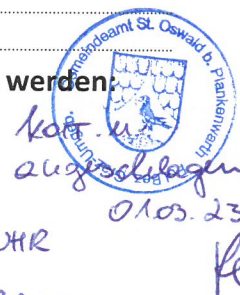 werden:
Gemeindeamt St. Oswald b. Plankenwarth
Bez. Graz-Umgebung
angeschlagen
01.03.23
UHR